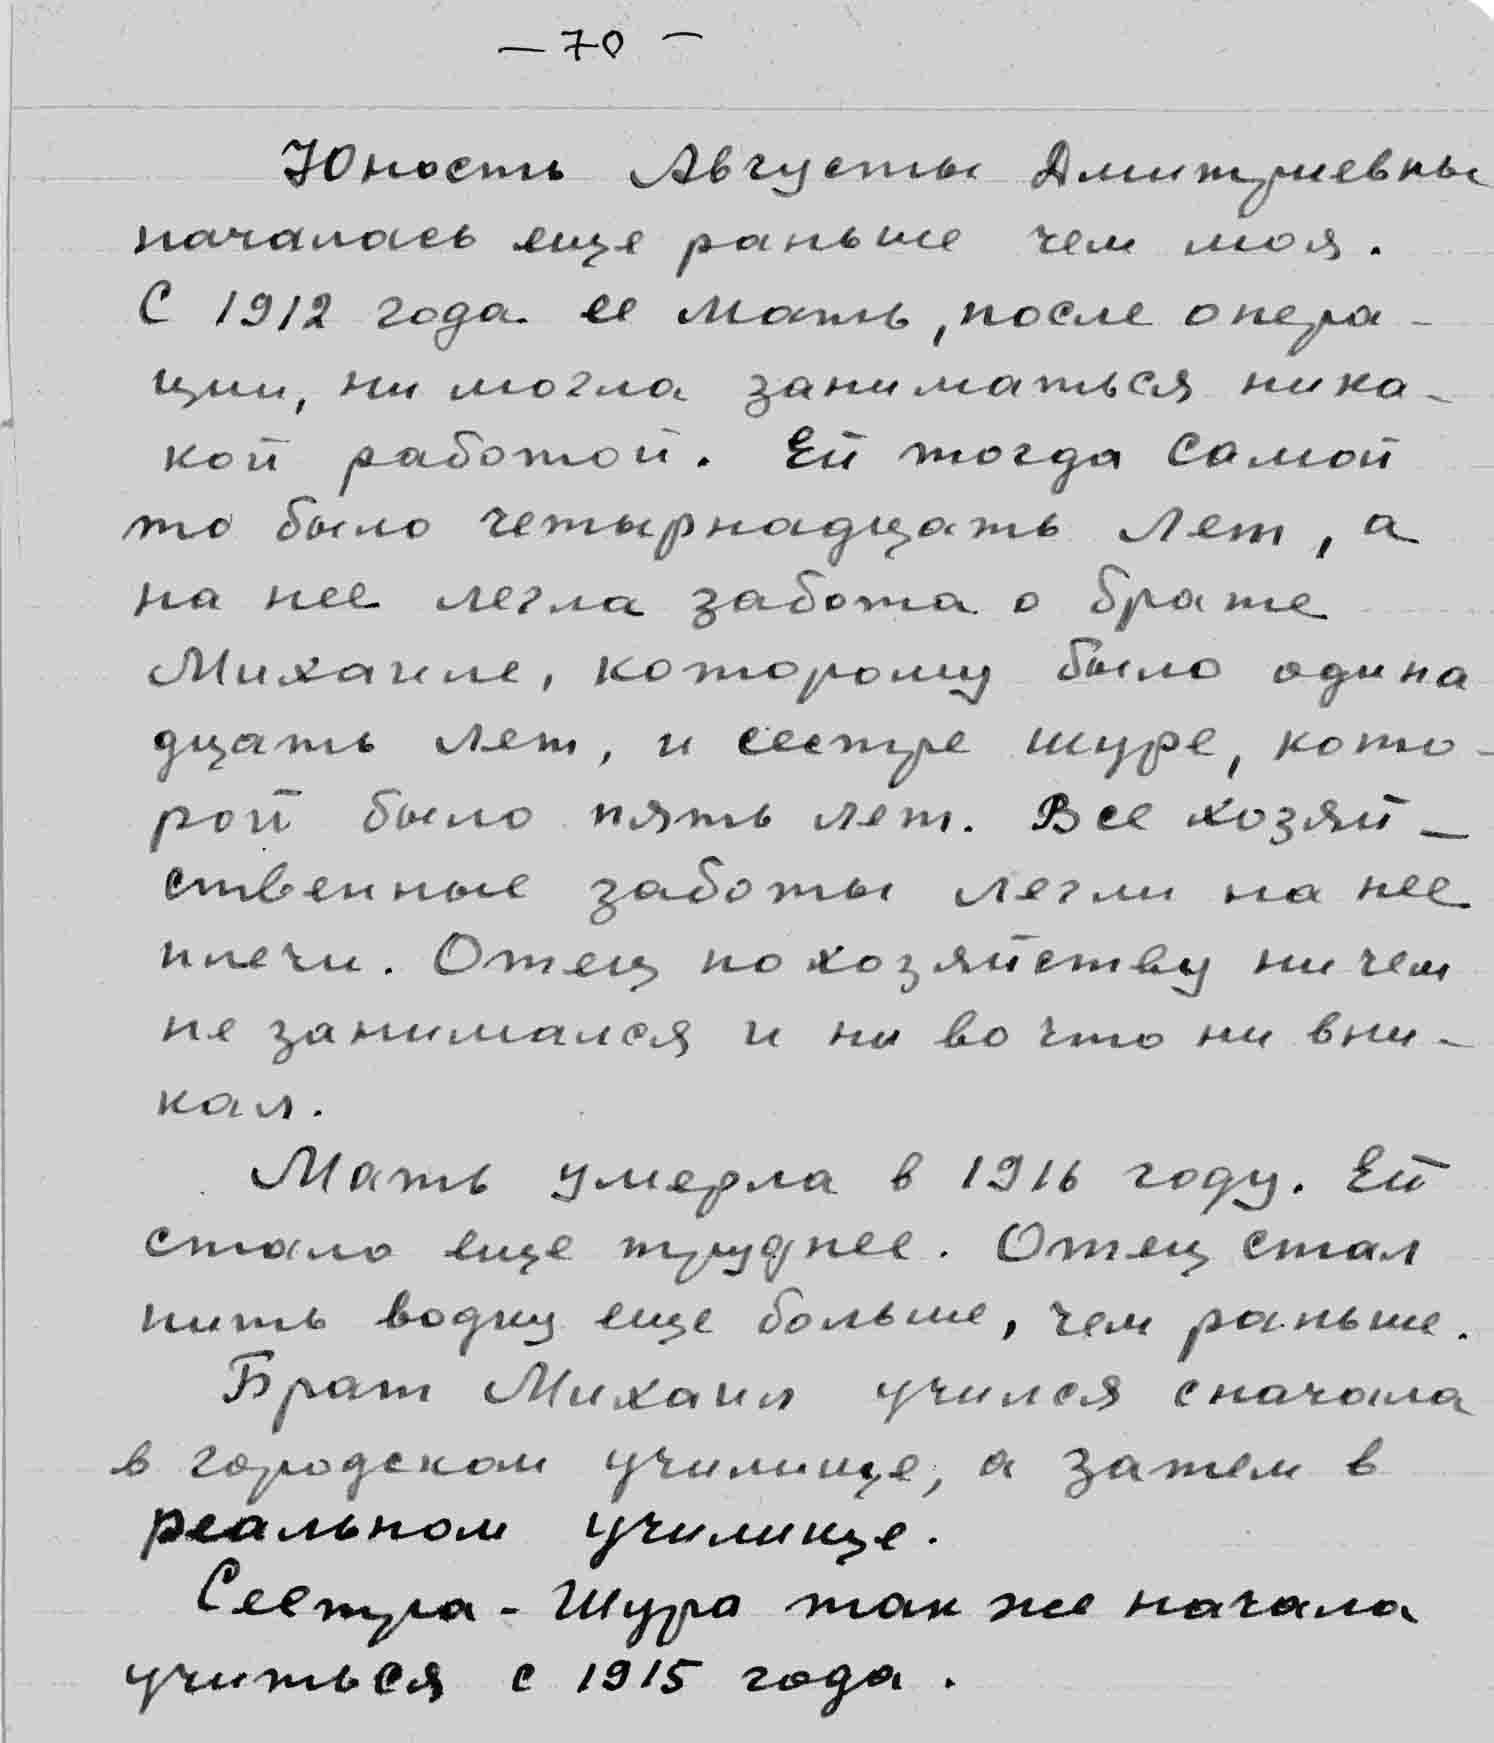 — 70 —
Юность Августы Дмитриевны
началась еще раньше чем моя.
С 1912 года ее мать, после опера-
ции, ни могла заниматься ника-
кой работой. Ей тогда самой
то было четырнадцать лет, а
на нее легла забота о брате
Михаиле, которому было одина
дцать лет, и сестре шуре, кото-
рой было пять лет. Все хозяй-
ственные заботы легли на нее
плечи. Отец по хозяйству ни чем
не занимался и ни во что ни вни-
кал.
Мать умерла в 1916 году. Ей
стало еще труднее. Отец стал
пить водку еще больше, чем раньше.
Брат Михаил учился сначала
в городском училище, а затем в
реальном училище.
Сестра - Шура так же начала
учиться с 1915 года.